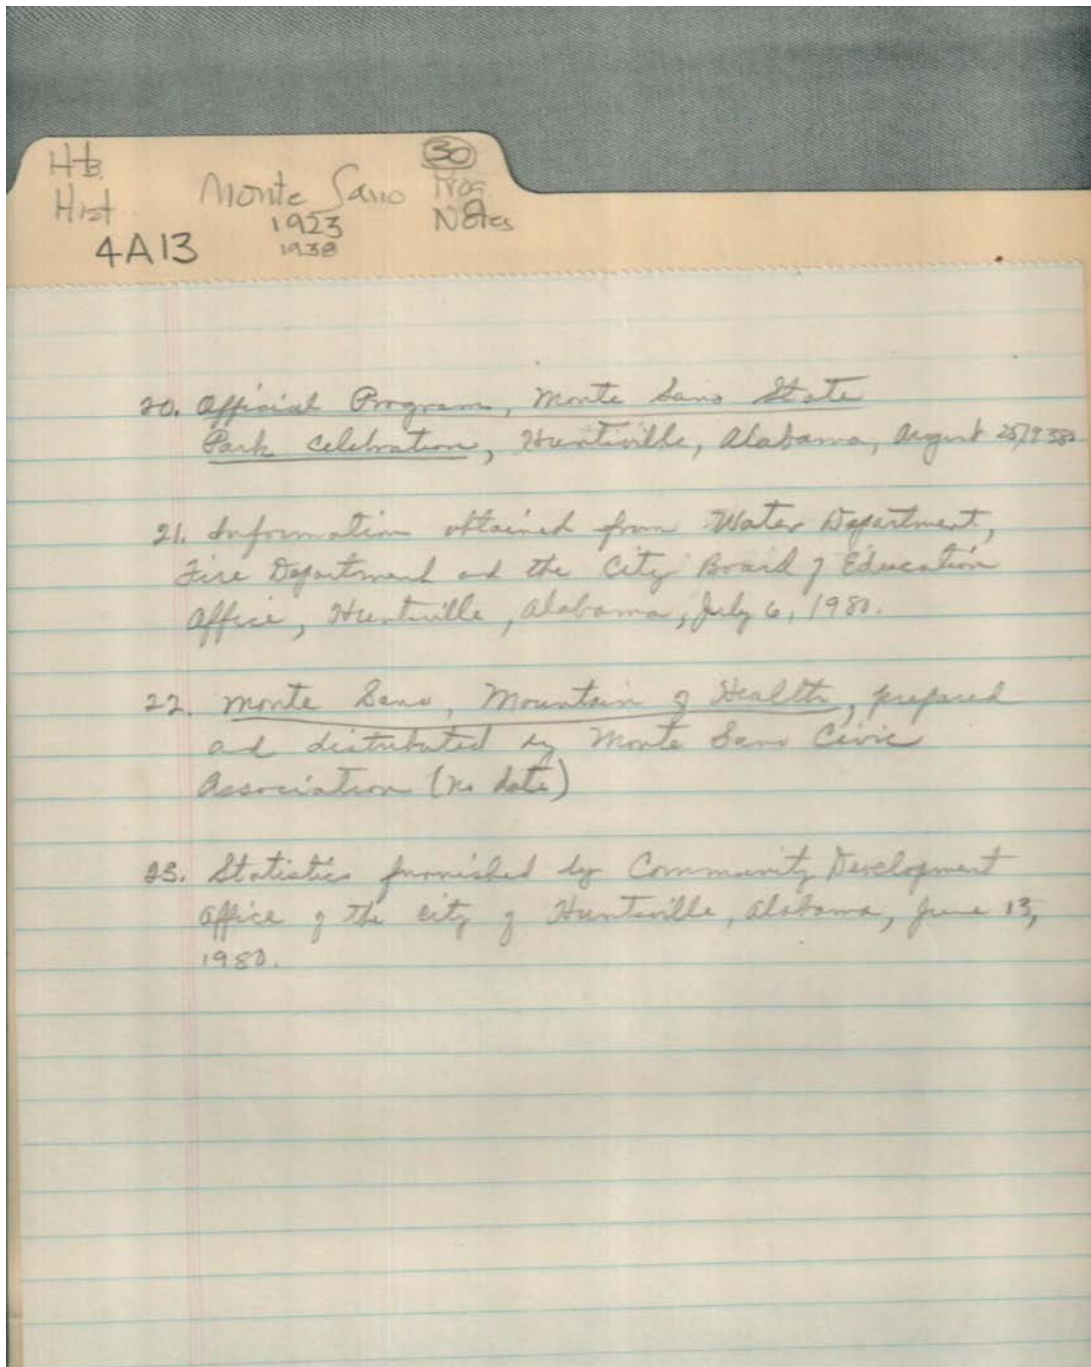 Htb. Hist
4A13
Monte Sano
1923
1938
30
Prog
Notes
20. Official Program, Monte Sano State
Park Celebration, Huntsville, Alabama, August 25, 1938.
21. Information obtained from Water Department,
Fire Department and the City Board of Education
Office, Huntsville, Alabama, July 6, 1980.
22. Monte Sano, Mountain of Health, prepared
and distributed by Monte Sano Civic
Association (no date)
23. Statistics furnished by Community Development
Office of the City of Huntsville, Alabama, June 13,
1980.